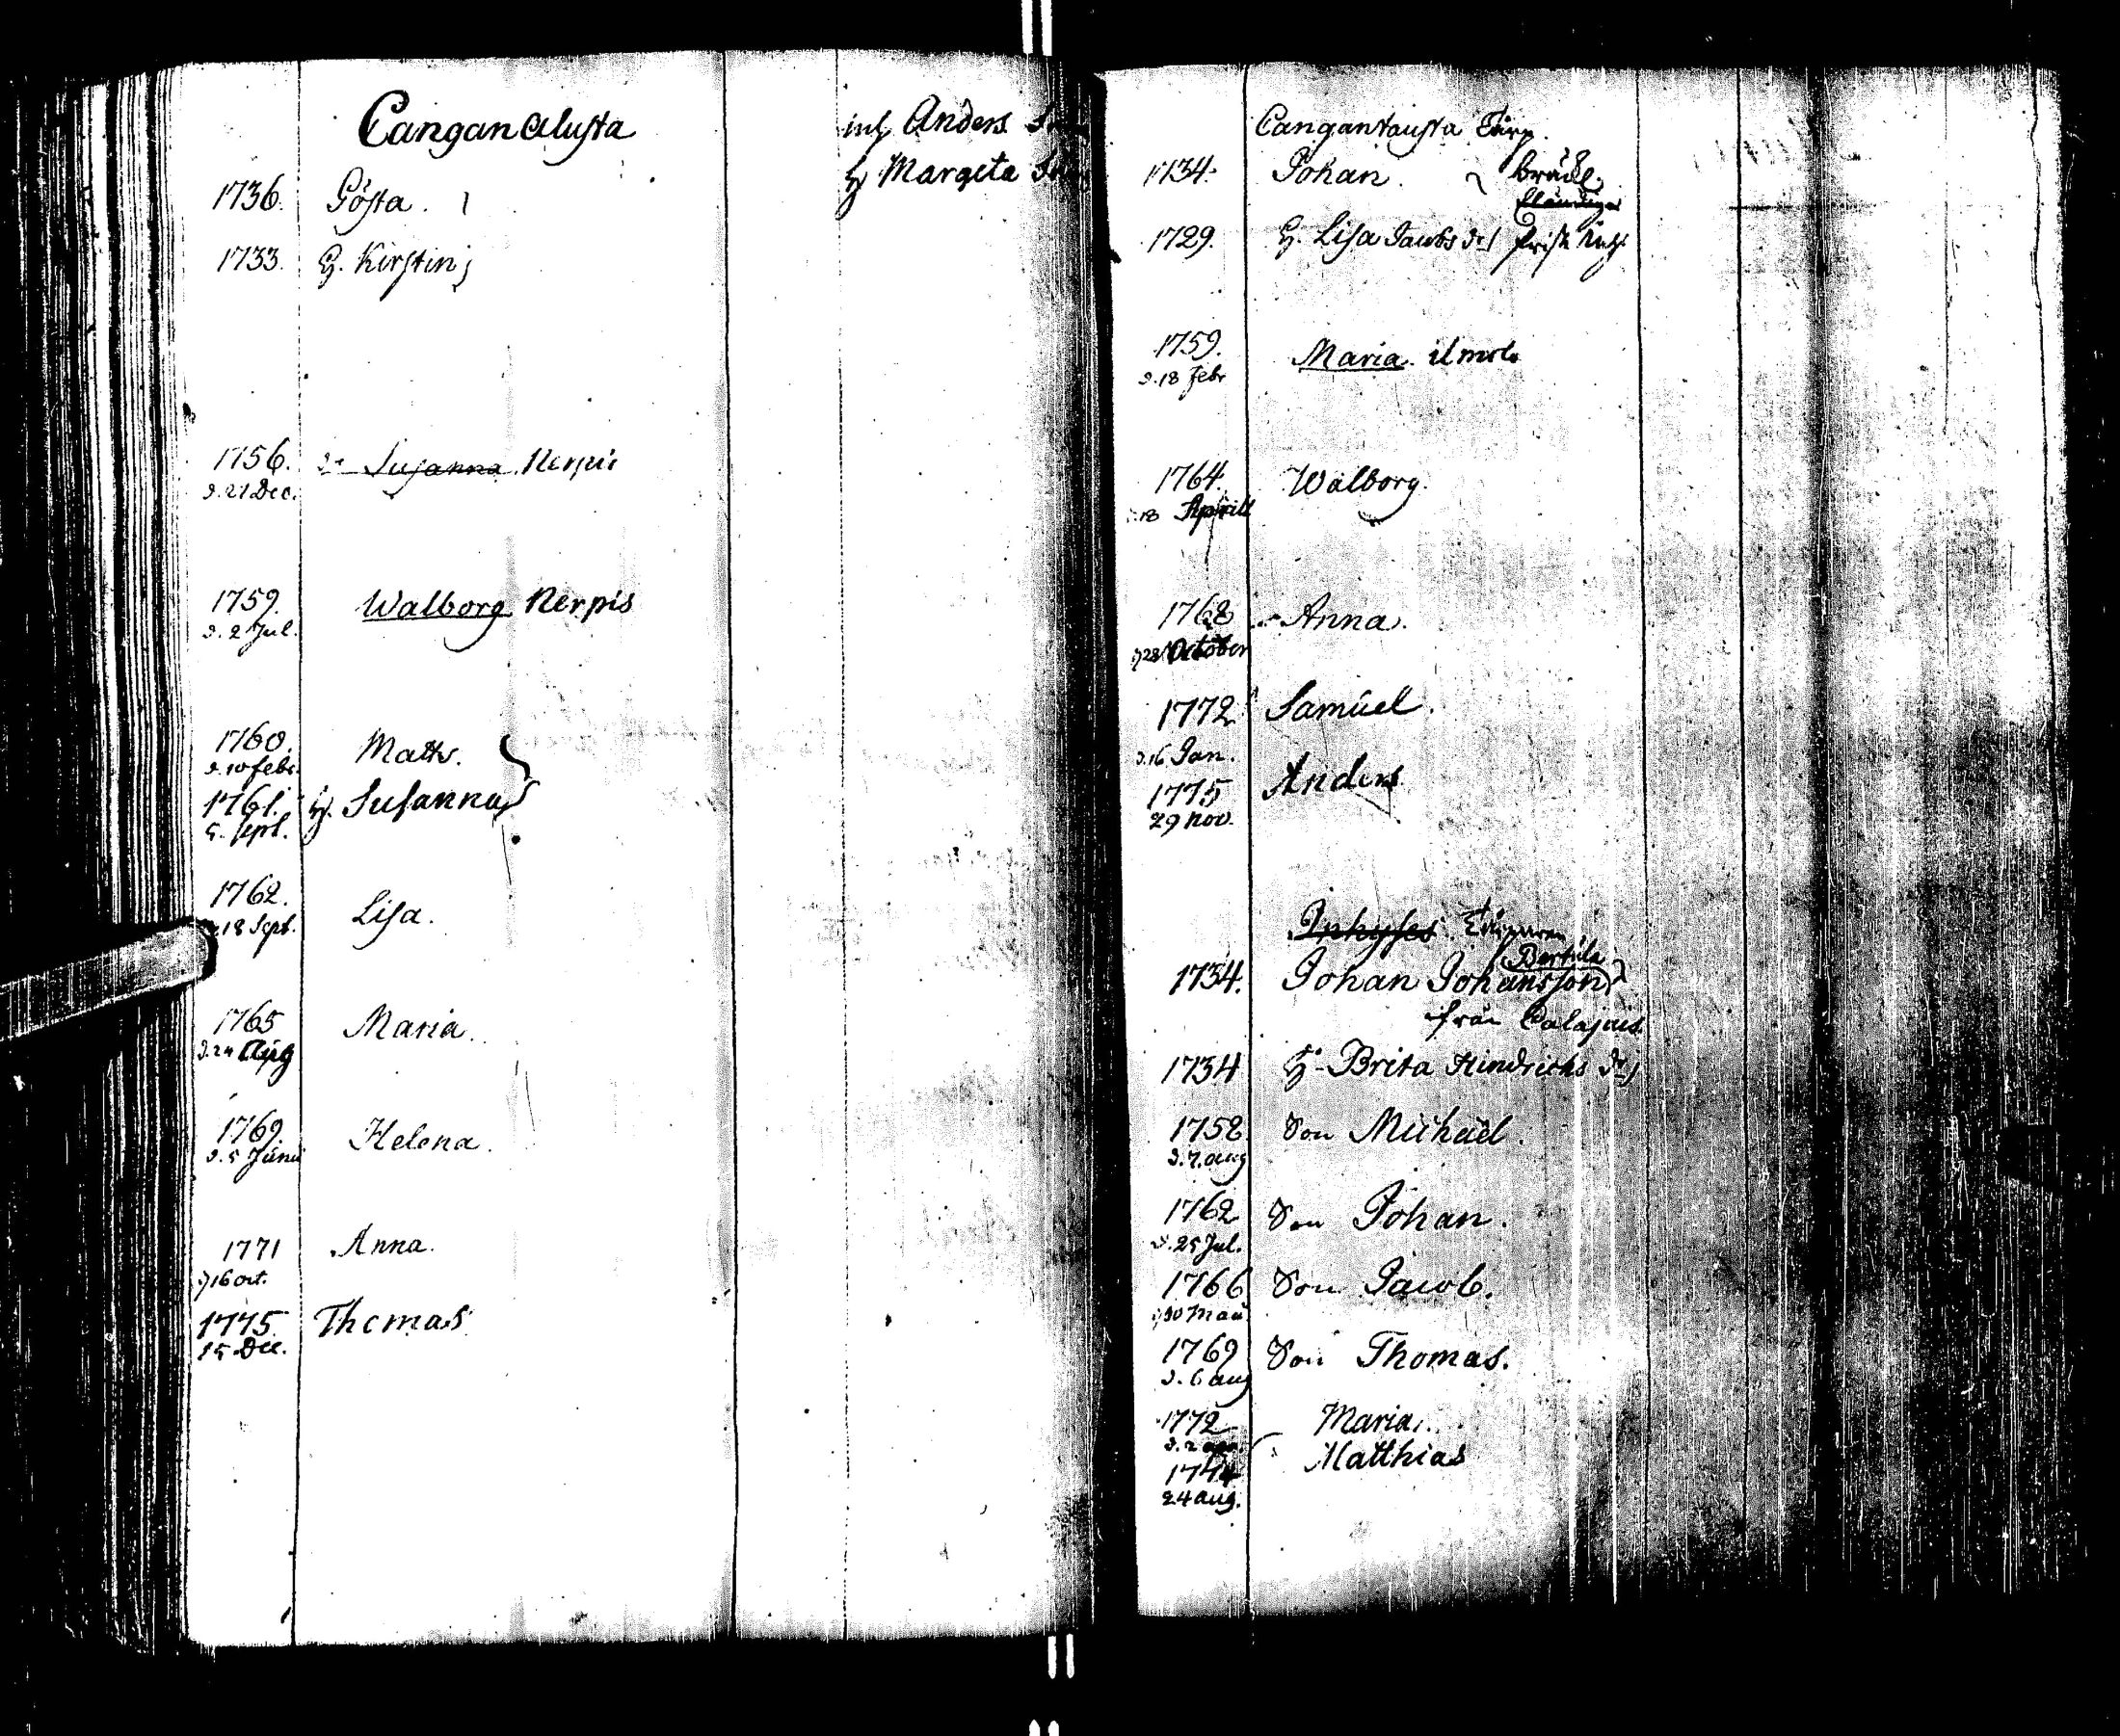 Cangan Alusta
inh Anders
H Margeta
1736. Gösta.
1733. H. Kirstin
1756. dr Susanna Nerpis
d. 21 Dec.
1759. Walborg Nerpis
d. 2 Jul.
1760. Matts.
d. 10 febr.
1761. H. Susanna
5. sept.
1762. Lisa.
18 Sept.
1765 Maria.
d. 24 Aug
1769. Helena.
d. 5 Junii
1771 Anna.
d 16 oct.
1775. Thomas
15 Dec.
Cangantausta Torp.
1734. Johan.
1729. H. Lisa Jacobs dr
1759. Maria. Ilmola
d. 18 Febr
1764. Walborg.
18 Aprill
1768 Anna.
d 28 October
1772 Samuel.
d. 16 Jan.
1775 Anders
29 nov.
Inhyses
Bertula
1734. Johan Johansson
från Calajois
1734 H. Brita Hindrichs dr
1758 Son Michael.
d. 7. aug
1762 Son Johan.
d. 25 Jul.
1766 Son Jacob.
d 30 Maii
1769 Son Thomas.
d. 6 aug
1772 Maria.
1774 Matthias
24 aug.